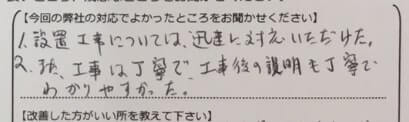 【今回の弊社の対応でよかったところをお聞かせください】
1.設置工事については、迅速に対応いただけた。
2.また、工事は丁寧で、工事後の説明も丁寧で
わかりやすかった。
【改善した方がいい所を教えて下さい】